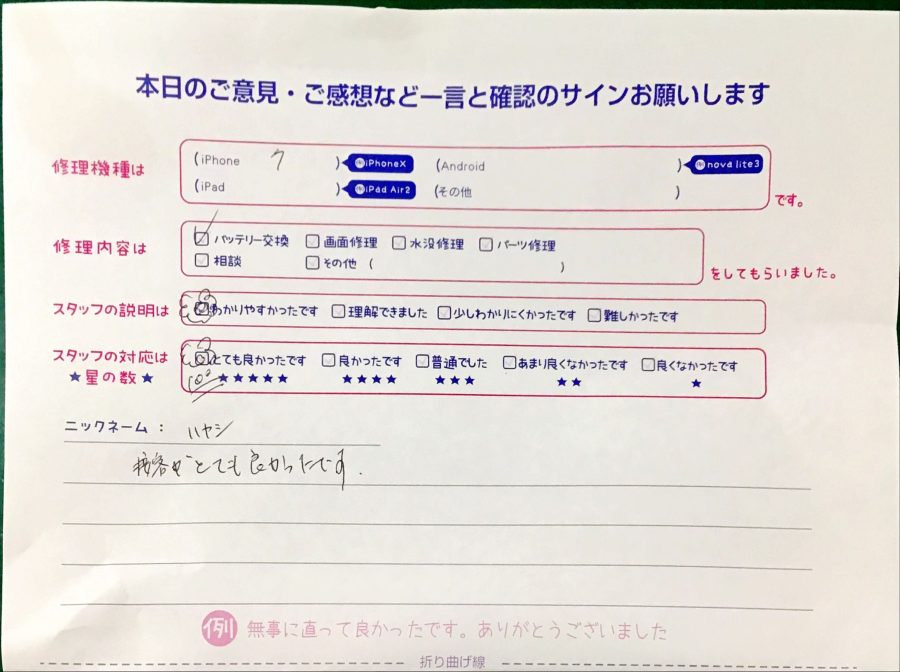 本日のご意見・ご感想など一言と確認のサインお願いします
修理機種は (iPhone 7 ) iPhoneX (Android ) nova lite3
(iPad ) iPad Air2 (その他 ) です。
修理内容は バッテリー交換 画面修理 水没修理 パーツ修理
相談 その他 ( ) をしてもらいました。
スタッフの説明は わかりやすかったです 理解できました 少しわかりにくかったです 難しかったです
スタッフの対応は とても良かったです 良かったです 普通でした あまり良くなかったです 良くなかったです
★星の数★ 100 ★★★★★ ★★★★ ★★★ ★★ ★
ニックネーム : ハヤシ
接客がとても良かったです.
例 無事に直って良かったです。ありがとうございました
折り曲げ線